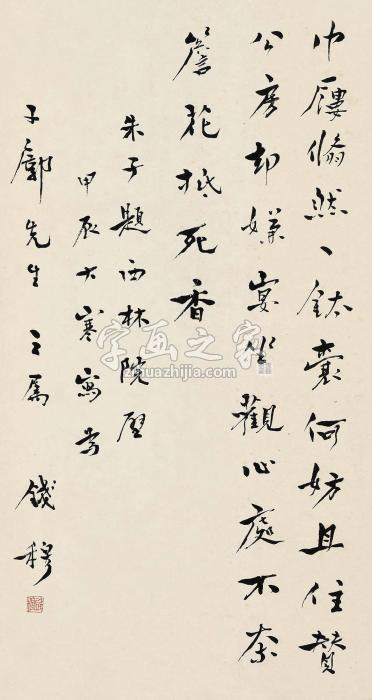 巾屨翛然一鉢囊何妨且住贊
公房却嫌宴坐觀心處不奈
簷花抵死香
朱子題西林院壁
甲辰大寒寫奉
子先生之屬 錢穆
字画之家
zihuazhijia.com